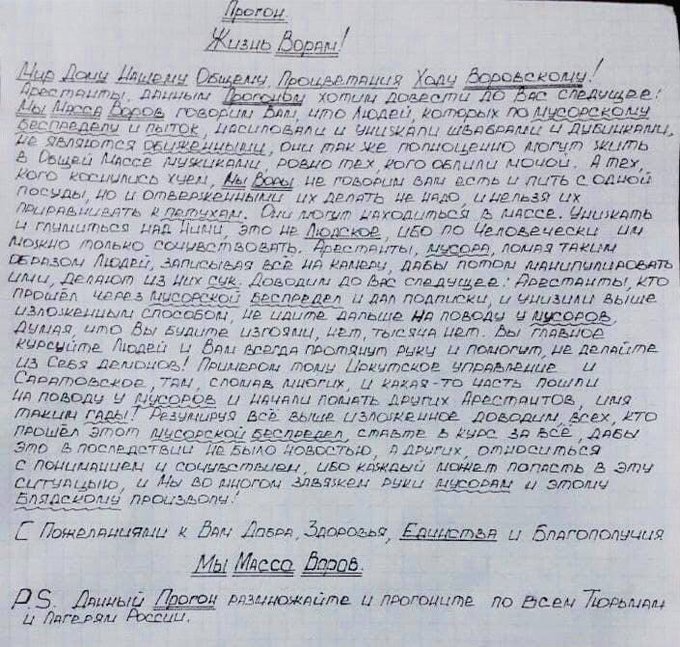 Прогон.
Жизнь Ворам!
Мир Дому Нашему Общему Процветания Ходу Воровскому!
Арестанты, данным Прогоном хотим довести до Вас следущее:
Мы Масса Воров говорим Вам, что Людей, которых по мусорскому
беспределу и пыток, насиловали и унижали швабрами и дубинками,
не являются обиженными, они так же полноценно могут жить
в Общей Массе мужиками, ровно тех, кого облили мочой. А тех,
кого коснулись хуем, Мы Воры не говорим вам есть и пить с одной
посуды, но и отверженными их делать не надо, и нельзя их
приравнивать к петухам. Они могут находиться в массе. Унижать
и глумиться над Ними, это не Людское, ибо по Человечески им
можно только сочувствовать. Арестанты, мусора, ломая таким
образом Людей, записывая всё на камеру, дабы потом манипулировать
ими, делают из них сук. Доводим до Вас следущее: Арестанты, кто
прошёл через мусорской беспредел и дал подписки, и унизили выше
изложенным способом, не идите дальше на поводу у мусоров,
думая, что Вы будите изгоями, нет, тысяча нет. Вы главное
курсуйте Людей и Вам всегда протянут руку и помогут, не делайте
из Себя демонов! Примером тому Иркутское управление и
Саратовское, там, сломав многих, и какая-то часть пошли
на поводу у мусоров и начали ломать других Арестантов, имя
таким гады! Резумируя всё выше изложенное доводим, всех, кто
прошёл этот мусорской беспредел, ставте в курс за всё, дабы
это в последствии не было новостью, а других, относиться
с пониманием и сочувствием, ибо каждый может попасть в эту
ситуацыю, и Мы во многом завяжем руки мусорам и этому
блядскому произволу!
С Пожеланиями к Вам Добра, Здоровья, Единства и Благополучия
Мы Масса Воров.
P.S. Данный Прогон размножайте и прогоните по всем Тюрьмам
и Лагерям России.